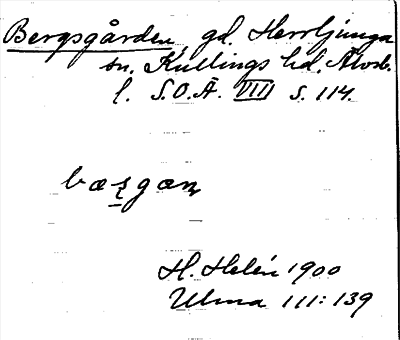 Bergsgården, gd. Herrljunga
sn. Kullings hd. Älvsb.
l. S.O.Ä. VIII s. 114.
bæʂgæn
H. Helén 1900
Ulma 111:139